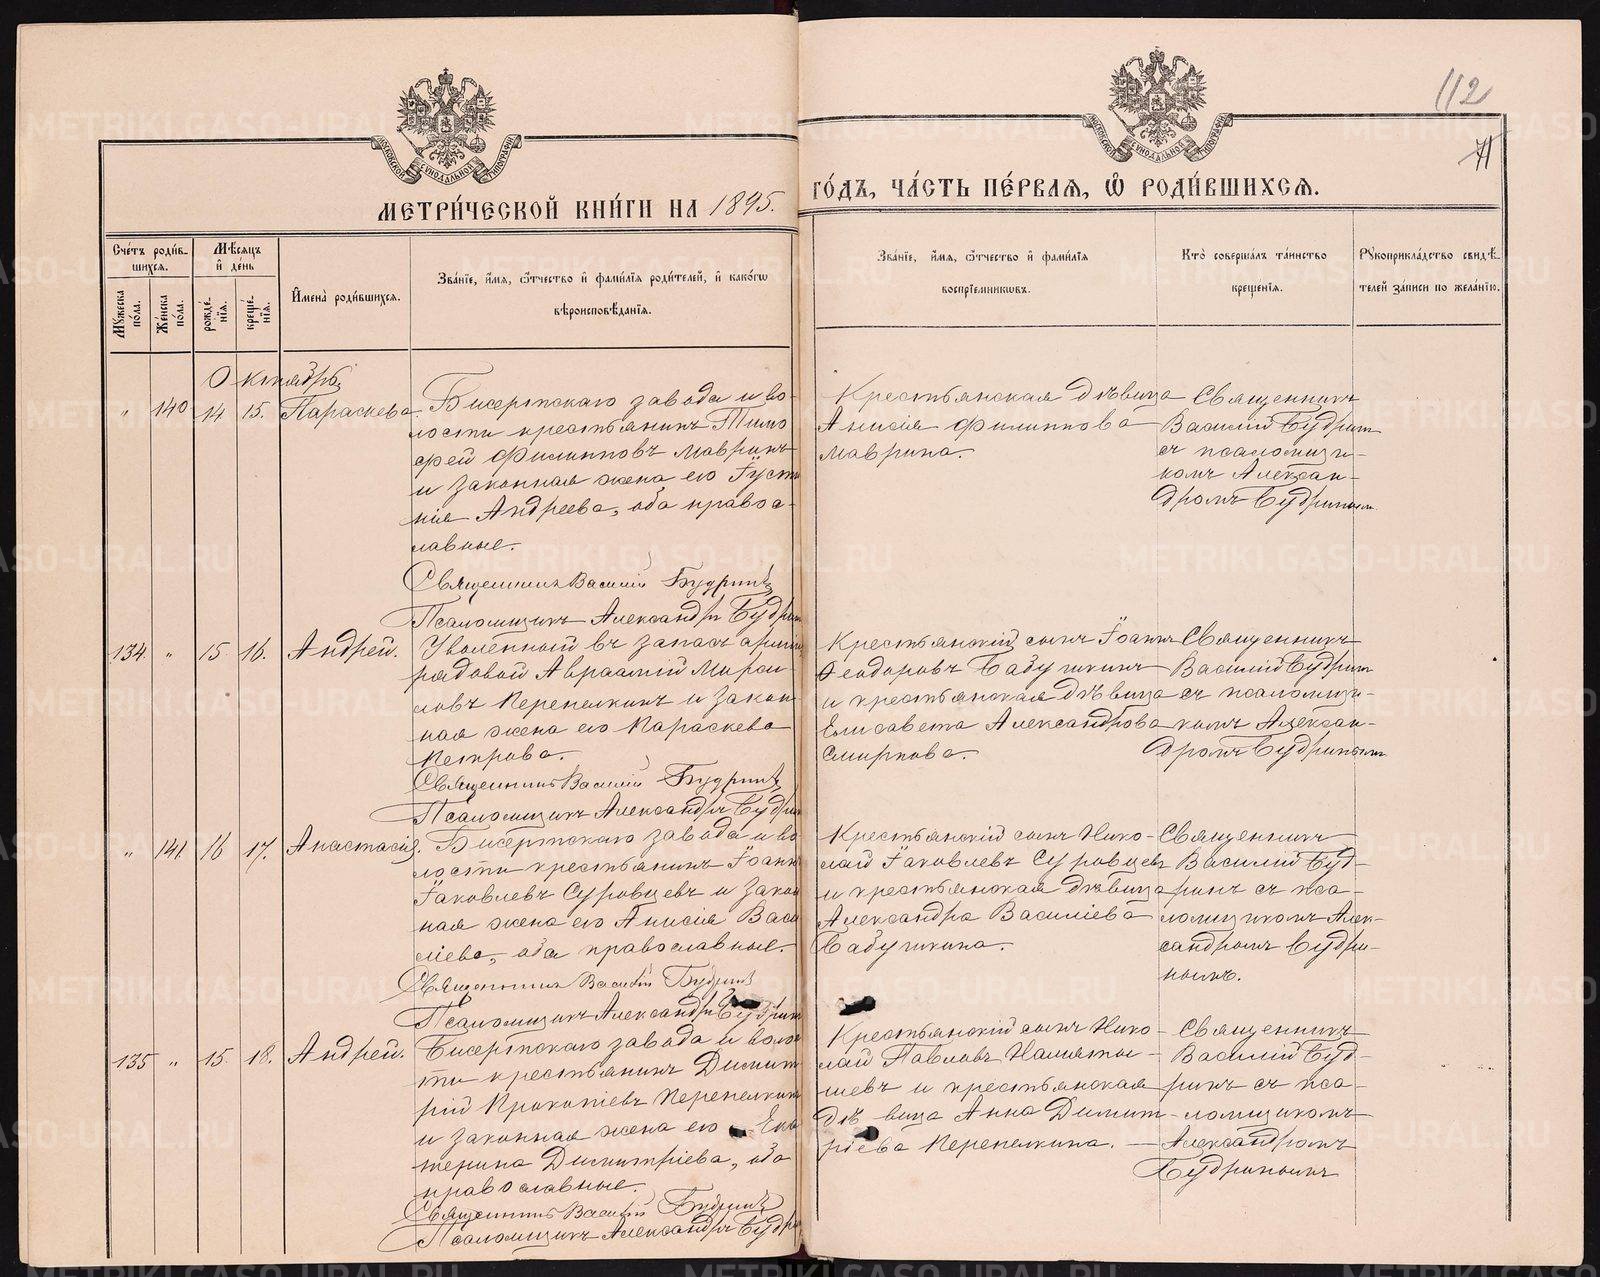 112
71
МОСКОВСКОЙ СѴНОДАЛЬНОЙ ТИПОГРАФІИ
МОСКОВСКОЙ СѴНОДАЛЬНОЙ ТИПОГРАФІИ
МЕТРИ́ЧЕСКОЙ КНИ́ГИ НА 1895.
ГО́ДЪ, ЧА́СТЬ ПЕ́РВАЯ, Ѡ҆ РОДИ́ВШИХСЯ.
Сче́тъ роди́в-
шихся.
Мѣ́сяцъ
и҆ де́нь
Мꙋ́жеска по́ла.
Же́нска по́ла.
рожде́-
нїя.
креще́-
нїя.
И҆мена̀ роди́вшихся.
Зва́нїе, и҆́мя, ѻ҆́тчество и҆ фами́лїя роди́телей, и҆ како́гѡ
вѣроисповѣ́данїя.
Зва́нїе, и҆́мя, ѻ҆́тчество и҆ фами́лїя
воспрїе́мникѡвъ.
Кто̀ соверша́лъ та́инство
креще́нїя.
Рꙋкоприкла́дство свидѣ́-
телей за́писи по жела́нїю.
Октябрь
" 140 14 15. Параскева.
Бисертскаго завода и во-
лости крестьянинъ Тимо
фей Филипповъ Мавринъ
и законная жена его Іусти
нія Андреева, оба правос-
лавные.
Священникъ Василій Будринъ
Псаломщикъ Александръ Будрин
Крестьянская дѣвица
Анисія Филиппова
Маврина.
Священникъ
Василій Будрин
съ псаломщи-
комъ Алексан-
дромъ Будринымъ
134 " 15 16. Андрей.
Уволенный въ запасъ арміи
рядовой Авраамій Марои
ловъ Перепелкинъ и закон
ная жена его Параскева
Петрова.
Священникъ Василій Будринъ
Псаломщикъ Александръ Будрин
Крестьянскій сынъ Іоаннъ
Ѳеодоровъ Бабушкинъ
и крестьянская дѣвица
Елисавета Александрова
Смирнова.
Священникъ
Василій Будрин
съ псаломщи-
комъ Алексан-
дромъ Будринымъ
" 141. 16 17. Анастасія.
Бисертскаго завода и во
лости крестьянинъ Іоаннъ
Іаковлевъ Суровцевъ и закон
ная жена его Анисія Васи
ліева, оба православные.
Священникъ Василій Будринъ
Псаломщикъ Александръ Будрин
Крестьянскій сынъ Нико-
лай Іаковлевъ Суровцевъ
и крестьянская дѣвица
Александра Василіева
Бабушкина.
Священникъ
Василій Буд-
ринъ съ пса-
ломщикомъ Алек-
сандромъ Будри-
нымъ.
135 " 15. 18. Андрей.
Бисертскаго завода и волос
ти крестьянинъ Димит
рій Прокопіевъ Перепелкинъ
и законная жена его Ека
терина Димитріева, оба
православные.
Священникъ Василій Будринъ
Псаломщикъ Александръ Будрин
Крестьянскій сынъ Нико-
лай Павловъ Напяты-
шевъ и крестьянская
дѣвица Анна Димит-
ріева Перепелкина.
Священникъ
Василій Буд-
ринъ съ пса-
ломщикомъ
Александромъ
Будринымъ
METRIKI.GASO-URAL.RU